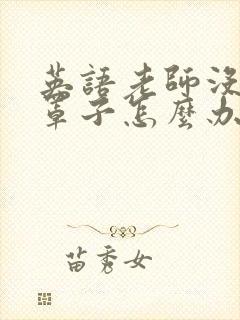 英語老師沒
罩子怎麼办
苗秀女